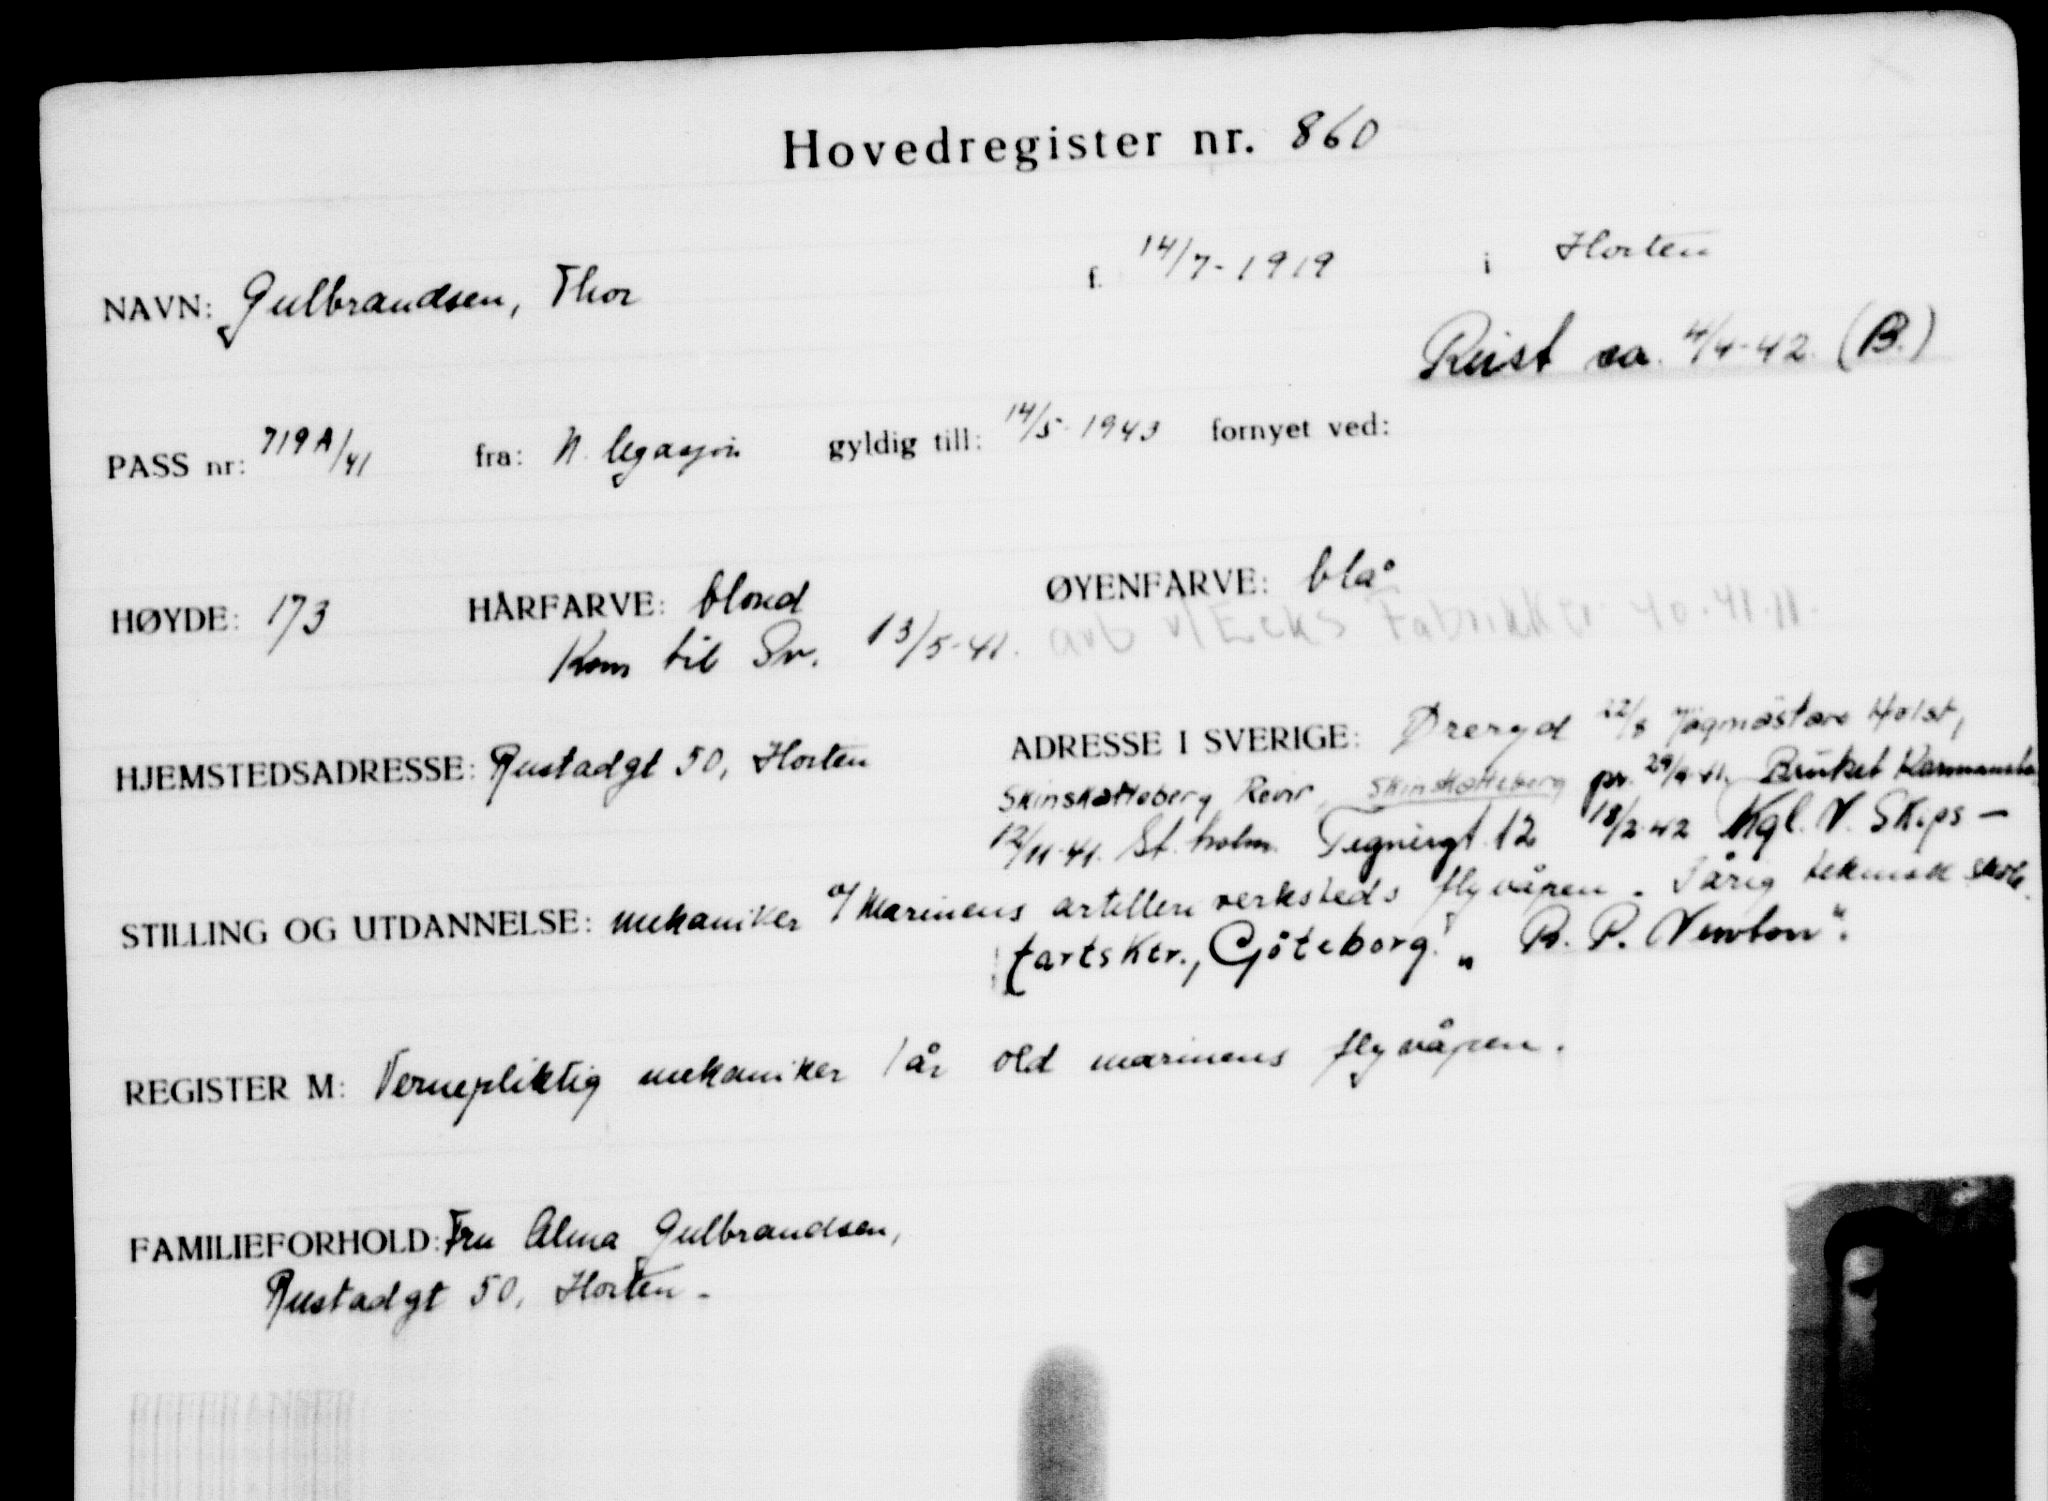 Hovedregister nr. 860
NAVN: Gulbrandsen, Thor f. 14/7-1919 i Horten
Reist ca. 4/4-42. (B.)
PASS nr: 719A/41 fra: N. legasjon gyldig till: 14/5-1943 fornyet ved:
HØYDE: 173 HÅRFARVE: blond ØYENFARVE: blå
Kom til Sv. 13/5-41. arb v/ Ecks Fabrikker 40-41.
HJEMSTEDSADRESSE: Rustadgt 50, Horten ADRESSE I SVERIGE: Øreryd 22/8 Jägmästare Holst,
Skinskatteberg Revir, Skinskatteberg pr. 29/9-41. Bruket
12/11-41. St.holm. Tegnérgt. 12 18/2-42 Kgl. N. Skips-
STILLING OG UTDANNELSE: mekaniker v/ Marinens artilleri verksteds flyvåpen. 1årig teknisk skole.
fartsktr., Göteborg. „B. P. Newton".
REGISTER M: Vernepliktig mekaniker 1 år ved marinens flyvåpen.
FAMILIEFORHOLD: Fru Alma Gulbrandsen,
Rustadgt 50, Horten.
REFERANSER